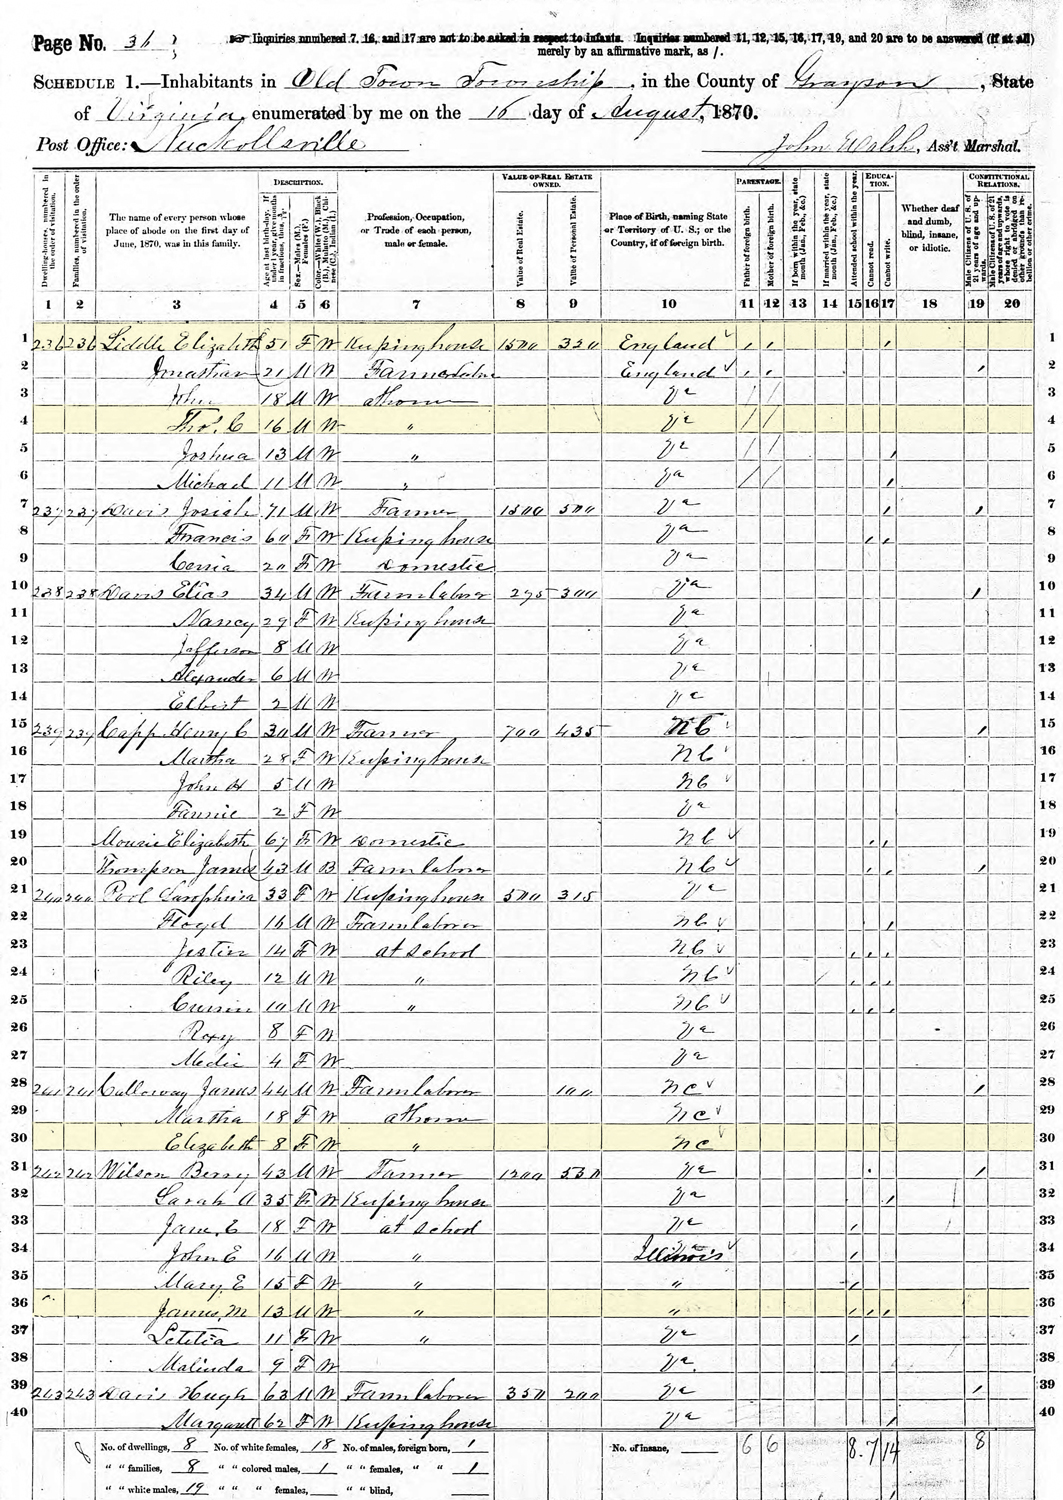 Page No. 36
☞ Inquiries numbered 7, 16, and 17 are not to be asked in respect to infants. Inquiries numbered 11, 12, 15, 16, 17, 19, and 20 are to be answered (if at all)
merely by an affirmative mark, as /.
SCHEDULE 1.—Inhabitants in Old Town Township, in the County of Grayson, State
of Virginia, enumerated by me on the 16 day of August, 1870.
Post Office: Nuckollsville John Walsh, Ass't Marshal.
DESCRIPTION. VALUE OF REAL ESTATE OWNED. PARENTAGE. EDUCATION. CONSTITUTIONAL RELATIONS.
Dwelling-houses, numbered in the order of visitation.
Families, numbered in the order of visitation.
The name of every person whose place of abode on the first day of June, 1870, was in this family.
Age at last birth-day. If under 1 year, give months in fractions, thus, 3/12
Sex.—Males (M.), Females (F.)
Color.—White (W.), Black (B.), Mulatto (M.), Chinese (C.), Indian (I.)
Profession, Occupation, or Trade of each person, male or female.
Value of Real Estate.
Value of Personal Estate.
Place of Birth, naming State or Territory of U. S.; or the Country, if of foreign birth.
Father of foreign birth.
Mother of foreign birth.
If born within the year, state month (Jan., Feb., &c.)
If married within the year, state month (Jan., Feb., &c.)
Attended school within the year.
Cannot read.
Cannot write.
Whether deaf and dumb, blind, insane, or idiotic.
Male Citizens of U. S. of 21 years of age and upwards.
Male Citizens of U. S. of 21 years of age and upwards, whose right to vote is denied or abridged on other grounds than rebellion or other crime.
1 2 3 4 5 6 7 8 9 10 11 12 13 14 15 16 17 18 19 20
1 236 236 Liddle Elizabeth 51 F W Keeping house 1500 320 England ✓ / / / 1
2 Jonathan 21 M W Farm England ✓ / / / 2
3 John 18 M W at home Va / / 3
4 Thos. C 16 M W " Va / / 4
5 Joshua 13 M W " Va / / / 5
6 Michael 11 M W " Va / / / 6
7 237 237 Davis Josiah 71 M W Farmer 1500 500 Va / / 7
8 Francis 60 F W Keeping house Va / / 8
9 20 F W Domestic Va 9
10 238 238 Davis Elias 34 M W Farm laborer 275 300 Va / 10
11 Nancy 29 F W Keeping house Va 11
12 Jefferson 8 M W Va 12
13 Alexander 6 M W Va 13
14 Elbert 2 M W Va 14
15 239 239 Capp Henry C 30 M W Farmer 700 435 NC ✓ / 15
16 Martha 28 F W Keeping house NC ✓ 16
17 John H 5 M W NC ✓ 17
18 Fannie 2 F W Va 18
19 Elizabeth 67 F W Domestic NC ✓ / / 19
20 Thompson James 43 M B Farm laborer NC ✓ / / / 20
21 240 240 Pool 33 F W Keeping house 500 315 Va 21
22 Floyd 16 M W Farm laborer NC ✓ / 22
23 14 F W at school NC ✓ / / / 23
24 Riley 12 M W " NC ✓ / / / 24
25 10 M W " NC ✓ / / / 25
26 Roxy 8 F W Va 26
27 4 F W Va 27
28 241 241 Calloway James 44 M W Farm laborer 100 NC ✓ / 28
29 Martha 18 F W at home NC ✓ 29
30 Elizabeth 8 F W " NC ✓ 30
31 242 242 Wilson Berry 43 M W Farmer 1200 530 Va / / 31
32 Sarah A 35 F W Keeping house Va / 32
33 Jane, E 18 F W at school Va / 33
34 John E 16 M W " Illinois ✓ / 34
35 Mary, E 15 F W " " / 35
36 James, M 13 M W " " / / / 36
37 Letitia 11 F W " Va / 37
38 Malinda 9 F W Va. 38
39 243 243 Davis Hugh 63 M W Farm laborer 350 200 Va / 39
40 Margarett 62 F W Keeping house Va / 40
8 No. of dwellings, 8 No. of white females, 18 No. of males, foreign born, 1 No. of insane, 6 6 8. 7 14 8
" " families, 8 " " colored males, 1 " " females, " " 1
" " white males, 19 " " " females, " " blind,